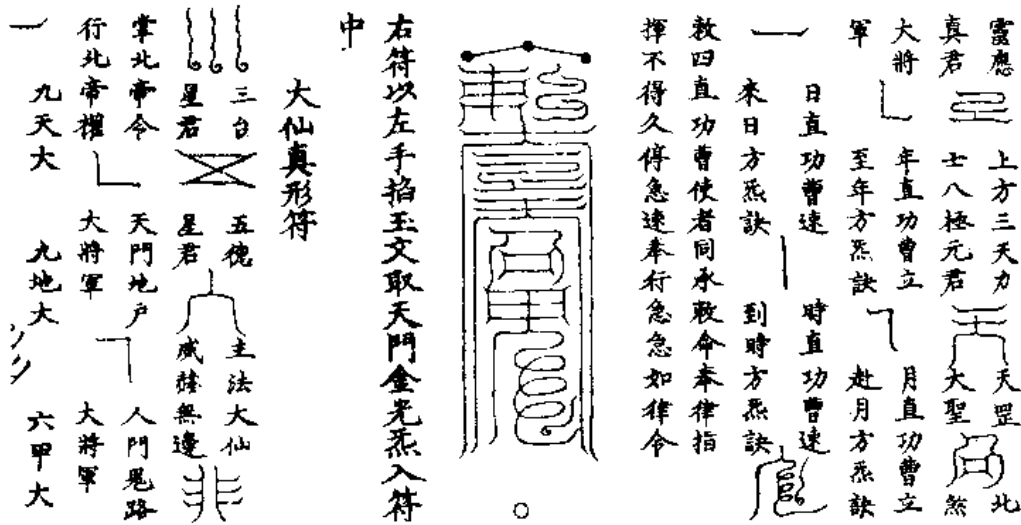 靈應 上方三天力 天罡 北
真君 士八極元君 大聖 煞
大將 年直功曹立 月直功曹立
軍 至年方炁訣 赴月方炁訣
日直功曹速 時直功曹速
來日方炁訣 到時方炁訣
敕四直功曹使者同承敕命奉律指
揮不得久停急速奉行急急如律令
右符以左手掐玉文取天門金光炁入符
中
大仙真形符
三台 五德 主法大仙
星君 星君 威赫無邊
掌北帝令 天門地戶 人門鬼路
行北帝權 大將軍 大將軍
九天大 九地大 六甲大